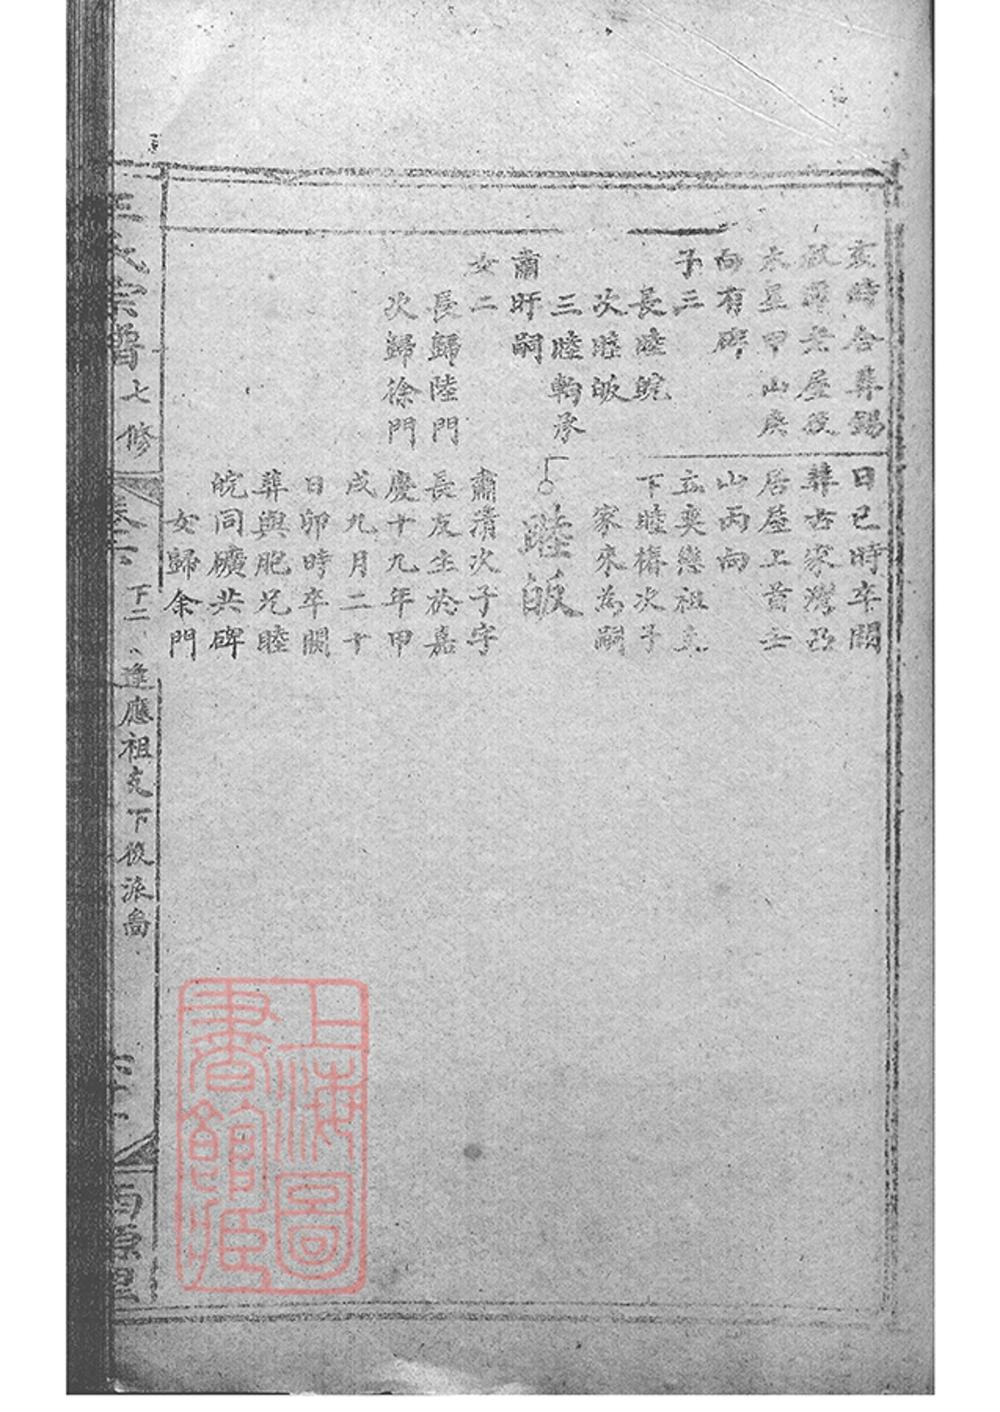 亥時合葬錫
水星甲山庚
向有碑
子三
長睦皖
次睦皈
三睦軥承
肅盱嗣
女二
長歸陸門
次歸徐門
日巳時卒闕
葬古家灣亞
居屋上首壬
山丙向
立奕繼祖支
下睦椿次子
家來為嗣
睦皈
肅清次子字
長友生於嘉
慶十九年甲
戌九月二十
日卯時卒闕
葬與胞兄睦
皖同礦共碑
女歸余門
王氏宗譜 七修
卷六
下二
逢應祖支下後派啚
上海圖
書館藏